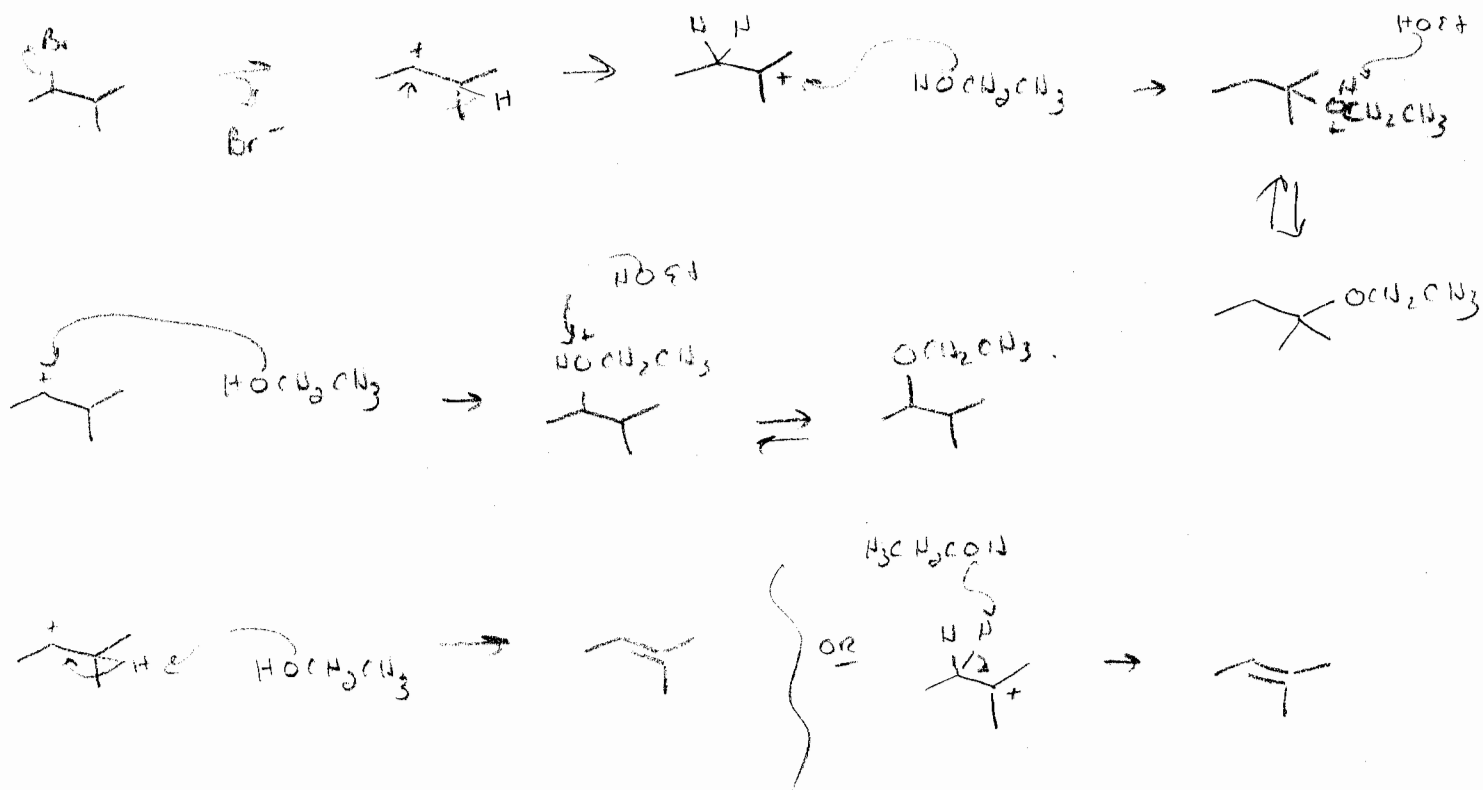 Br
Br⁻
+
H
H H
+
HOCH₂CH₃
HOEt
H
OCH₂CH₃
+
OCH₂CH₃
+
HOCH₂CH₃
HOEt
+
HOCH₂CH₃
OCH₂CH₃
+
H
HOCH₂CH₃
OR
H₃CH₂COH
H H
+